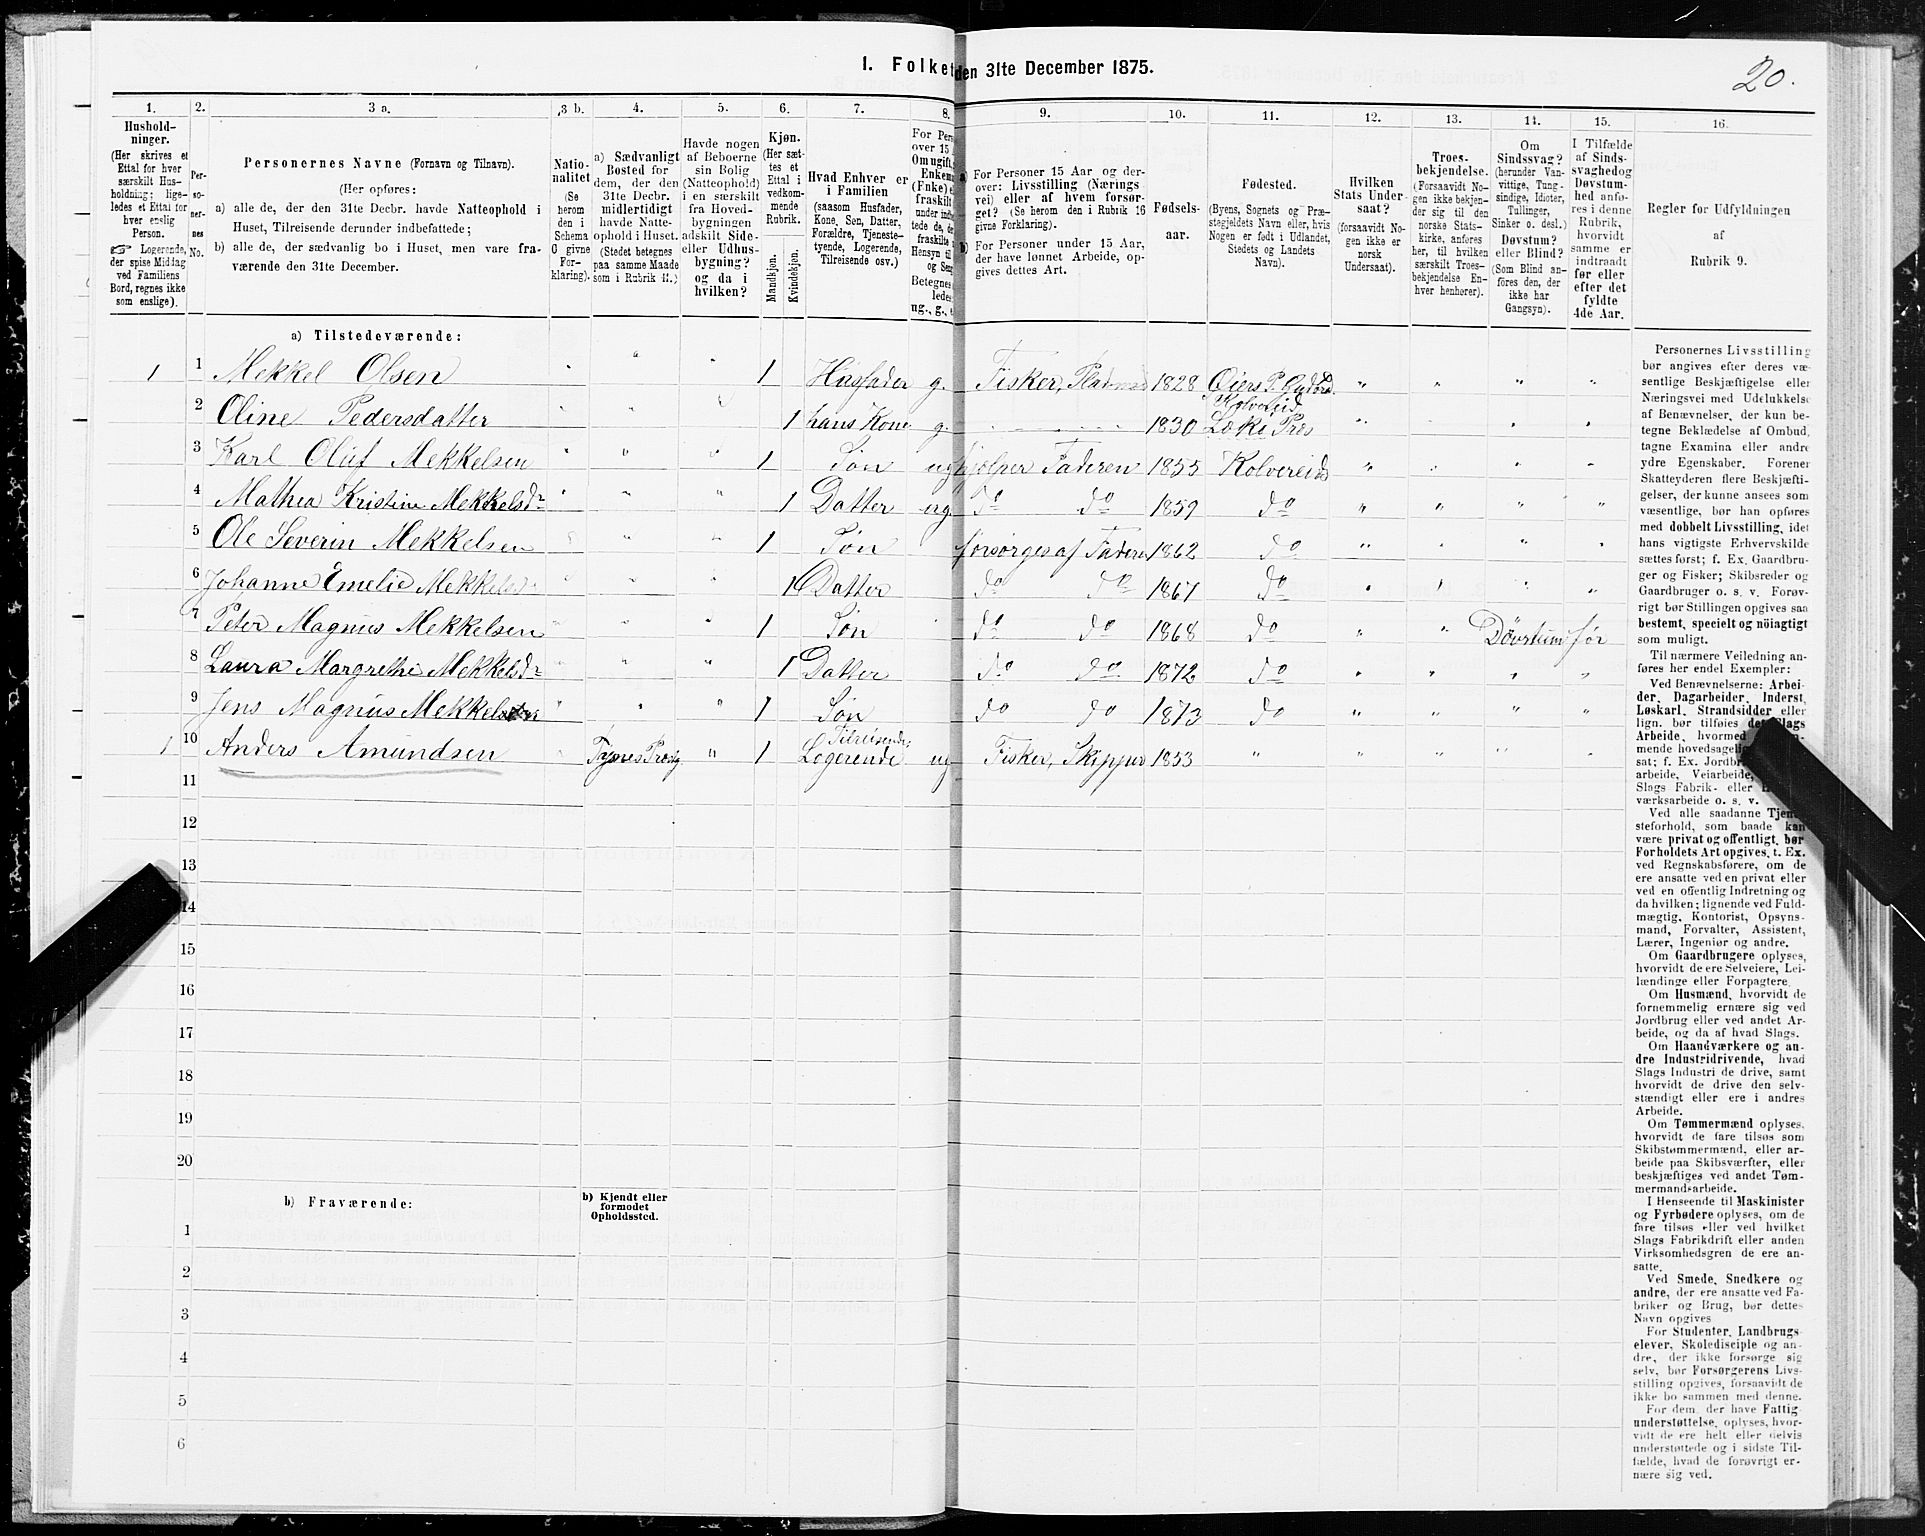 1. Folket den 31te December 1875.
20.
1. 2. 3 a. 3 b. 4. 5. 6. 7. 8. 9. 10. 11. 12. 13. 14. 15. 16.
Hushold-
ninger.
(Her skrives et
Ettal for hver
særskilt Hus-
holdning; lige-
ledes et Ettal for
hver enslig
Person.
☞ Logerende,
der spise Middag
ved Familiens
Bord, regnes ikke
som enslige).
Per-
so-
ner-
nes
No.
Personernes Navne (Fornavn og Tilnavn).
(Her opføres:
a) alle de, der den 31te Decbr. havde Natteophold i
Huset, Tilreisende derunder indbefattede;
b) alle de, der sædvanlig bo i Huset, men vare fra-
værende den 31te December.
Natio-
nalitet
(Se
herom
den i
Schema
O givne
For-
klaring).
a) Sædvanligt
Bosted for
dem, der den
31te Decbr.
midlertidigt
havde Natte-
ophold i Huset.
(Stedet betegnes
paa samme Maade
som i Rubrik 11.)
Havde nogen
af Beboerne
sin Bolig
(Natteophold)
i en særskilt
fra Hoved-
bygningen
adskilt Side-
eller Udhus-
bygning?
og da i
hvilken?
Kjøn.
(Her sæt-
tes et
Ettal i
vedkom-
mende
Rubrik.
Mandkjøn.
Kvindekjøn.
Hvad Enhver er
i Familien
(saasom Husfader,
Kone, Søn, Datter,
Forældre, Tjeneste-
tyende, Logerende,
Tilreisende osv.)
For Pers
over 15
Om ugift,
Enkem
(Fnke) e
fraskilt
under indb
tede de, de
fraskilte
Hensyn til
og Sen
Betegnes
ledes
ug., g., e
a) For Personer 15 Aar og der-
over: Livsstilling (Nærings-
vei) eller af hvem forsør-
get? (Se herom den i Rubrik 16
givne Forklaring).
b) For Personer under 15 Aar,
der have lønnet Arbeide, op-
gives dettes Art.
Fødsels-
aar.
Fødested.
(Byens, Sognets og Præ-
stegjeldets Navn eller, hvis
Nogen er født i Udlandet,
Stedets og Landets
Navn).
Hvilken
Stats Under-
saat?
(forsaavidt No-
gen ikke er
norsk
Undersaat).
Troes-
bekjendelse.
(Forsaavidt No-
gen ikke bekjen-
der sig til den
norske Stats-
kirke, anføres
her, til hvilken
særskilt Troes-
bekjendelse En-
hver henhører).
Om
Sindssvag?
(herunder Van-
vittige, Tung-
sindige, Idioter,
Tullinger,
Sinker o. desl.)
Døvstum?
eller Blind?
(Som Blind an-
føres den, der
ikke har
Gangsyn).
I Tilfælde
af Sinds-
svaghed og
Døvstum-
hed anfø-
res i denne
Rubrik,
hvorvidt
samme er
indtraadt
før eller
efter det
fyldte
4de Aar.
Regler før Udfyldningen
af
Rubrik 9.
a) Tilstedeværende:
1 1 Mekkel Olsen " " " 1 Husfader g. Fisker, 1828 " " " "
Kolvereid
2 Oline Pedersdatter " " " 1 hans Kone g. 1830 Leke Præs " " " "
3 Karl Oluf Mekkelsen " " " 1 Søn ug hjelper Faderen 1855 Kolvereids " " " "
4 Mathea Kristine Mekkelsdr " " " 1 Datter ug. do do 1859 do " " " "
5 Ole Severin Mekkelsen " " " 1 Søn forsørges af Faderen 1862 do " " " "
6 Johanne Emelie Mekkelsd " " " 1 Datter do do 1867 do " " " "
7 Peter Magnus Mekkelsen " " " 1 Søn do do 1868 do " " Døvstum før
8 Laura Margrethe Mekkelsdr " " " 1 Datter do do 1872 do " " " "
9 Jens Magnus Mekkelsen " " " 1 Søn do do 1873 do " " " "
Tilreisende
1 10 Anders Amundsen " " 1 Logerende ug Fisker, Skipper 1853 " " " " "
11
12
13
14
15
16
17
18
19
20
b) Fraværende:
b) Kjendt eller
formodet
Opholdssted.
1
2
3
4
5
6
Personernes Livsstilling
bør angives efter deres væ-
sentlige Beskjæftigelse eller
Næringsvei med Udelukkelse
af Benævnelser, der kun be-
tegne Beklædelse af Ombud,
tagne Examina eller andre
ydre Egenskaber. Forener
Skatteyderen flere Beskjæfti-
gelser, der kunne ansees som
væsentlige, bør han opføres
med dobbelt Livsstilling, idet
hans vigtigste Erhvervskilde
sættes først; f. Ex. Gaardbru-
ger og Fisker; Skibsreder og
Gaardbruger o. s. v. Forøv-
rigt bør Stillingen opgives saa
bestemt, specielt og nöiagtigt
som muligt.
Til nærmere Veiledning an-
føres her endel Exempler:
Ved Benævnelserne: Arbei-
der, Dagarbeider, Inderst,
Løskarl, Strandsidder eller
lign. bør tilføies det Slags
Arbeide, hvormed
mende hovedsagelig
sat; f. Ex. Jordbr
arbeide, Veiarbeide,
Slags Fabrik- eller
værksarbeide o. s. v.
Ved alle saadanne Tjene-
steforhold, som baade kan
være privat og offentligt, bør
Forholdets Art opgives, t. Ex.
ved Regnskabsførere, om de
ere ansatte ved en privat eller
ved en offentlig Indretning og
da hvilken; lignende ved Fuld-
mægtig, Kontorist, Opsyns-
mand, Forvalter, Assistent,
Lærer, Ingeniør og andre.
Om Gaardbrugere oplyses,
hvorvidt de ere Selveiere, Lei-
lændinge eller Forpagtere.
Om Husmænd, hvorvidt de
fornemmelig ernære sig ved
Jordbrug eller ved andet Ar-
beide, og da af hvad Slags.
Om Haandværkere og an-
dre Industridrivende, hvad
Slags Industri de drive, samt
hvorvidt de drive den selv-
stændigt eller ere i andres
Arbeide.
Om Tømmermænd oplyses,
hvorvidt de fare tilsøs som
Skibstømmermænd, eller ar-
beide paa Skibsværfter, eller
beskjæftiges ved andet Tøm-
mermandsarbeide.
I Henseende til Maskinister
og Fyrbødere oplyses, om de
fare tilsøs eller ved hvilket
Slags Fabrikdrift eller anden
Virksomhedsgren de ere an-
satte.
Ved Smede, Snedkere og
andre, der ere ansatte ved Fa-
briker og Brug, bør dettes
Navn opgives
For Studenter, Landbrugs-
elever, Skoledisciple og an-
dre, der ikke forsørge sig
selv, bør Forsørgerens Livs-
stilling opgives, forsaavidt de
ikke bo sammen med denne.
For dem, der have Fattig-
understøttelse, oplyses, hvor-
vidt de ere helt eller delvis
understøttede og i sidste Til-
fælde, hvad de forøvrigt er-
nære sig ved.